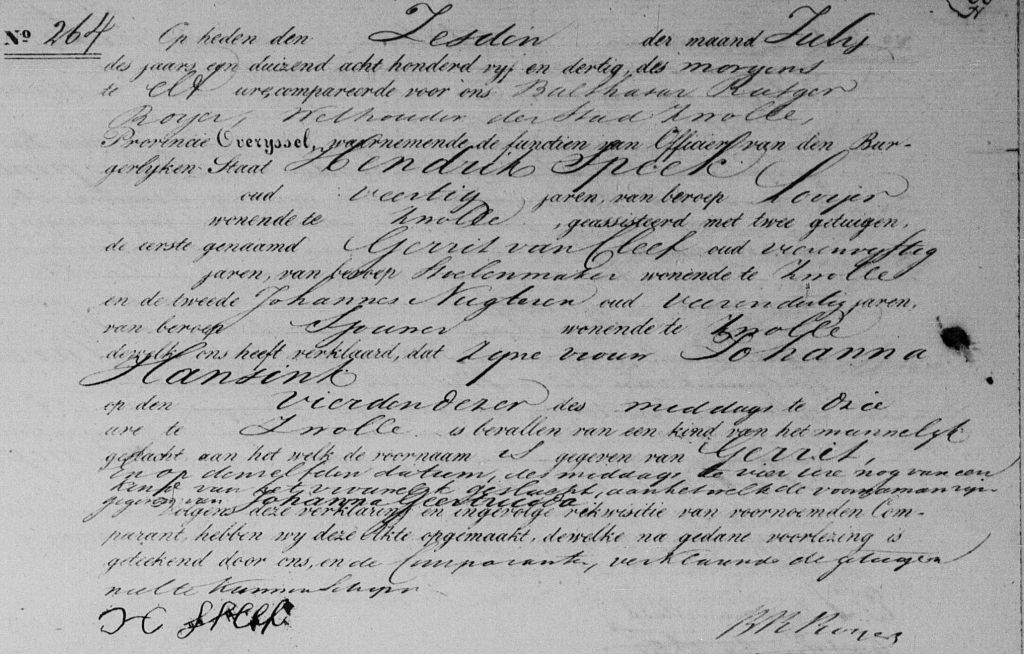 Nº 264 Op heden den Zesden der maand July
des jaars een duizend acht honderd vyf en dertig, des morgens
te elf ure, compareerde voor ons Balthasar Rutger
Royer, Wethouder der Stad Zwolle,
Provincie Overyssel, waarnemende de functien van Officier van den Bur-
gerlyken Staat Hendrik Spoek
oud veertig jaren, van beroep Looijer
wonende te Zwolle, geassisteerd met twee getuigen,
de eerste genaamd Gerrit van Cleef oud vierenvyftig
jaren, van beroep Stoelenmaker wonende te Zwolle
en de tweede Johannes Nugteren oud vierendertig jaren,
van beroep wonende te Zwolle
dewelke ons heeft verklaard, dat zyne vrouw Johanna
Hansink
op den vierden dezer des middags te drie
ure te Zwolle is bevallen van een kind van het mannelyk
geslacht aan het welk de voornaam is gegeven van Gerrit,
en op denzelfden datum, des middags te vier ure nog van een
kind van het vrouwelyk geslacht, aan hetwelk de voornamen zyn
gegeven van Johanna Gerridina
Volgens deze verklaring en ingevolge rekwisitie van voornoemden Com-
parant, hebben wy deze Akte opgemaakt, dewelke na gedane voorlezing is
geteekend door ons, en de Comparant, verklarende de getuigen
niet te kunnen schryven
H
B R Royer